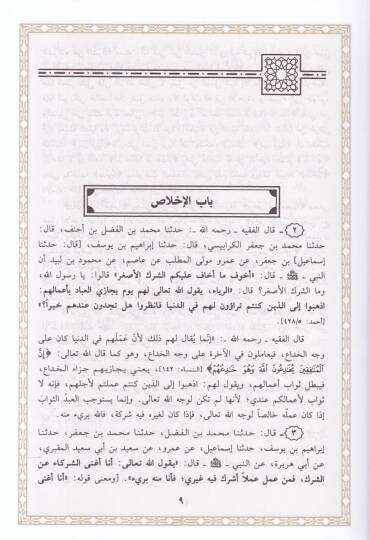 باب الإخلاص
٢ ـ قال الفقيه ـ رحمه الله ـ: حدثنا محمد بن الفضل بن أحنف، قال:
حدثنا محمد بن جعفر الكرابيسي، قال: حدثنا إبراهيم بن يوسف، [قال: حدثنا
إسماعيل] بن جعفر، عن عمرو مولى المطلب عن عاصم، عن محمود بن لبيد أن
النبي ـ ﷺ ـ قال: «أخوف ما أخاف عليكم الشرك الأصغر» قالوا: يا رسول الله،
وما الشرك الأصغر؟ قال: «الرياء، يقول الله تعالى لهم يوم يجازي العباد بأعمالهم:
اذهبوا إلى الذين كنتم تراؤون لهم في الدنيا فانظروا هل تجدون عندهم خيراً؟»
[أحمد: ٤٢٨/٥].
قال الفقيه ـ رحمه الله ـ: إنَّما يُقال لهم ذلك لأنَّ عَمَلَهم في الدنيا كان على
وجه الخداع، فيعاملون في الآخرة على وجه الخداع، وهو كما قال الله تعالى: ﴿إِنَّ
ٱلْمُنَٰفِقِينَ يُخَٰدِعُونَ ٱللَّهَ وَهُوَ خَٰدِعُهُمْ﴾ [النساء: ١٤٢]، يعني يجازيهم جزاء الخداع،
فيبطل ثواب أعمالهم، ويقول لهم: اذهبوا إلى الذين كنتم عملتم لأجلهم، فإنه لا
ثواب لأعمالكم عندي؛ لأنها لم تكن لوجه الله تعالى. وإنما يستوجب العبدُ الثوابَ
إذا كان عمله خالصاً لوجه الله تعالى، فإذا كان لغيره فيه شركة، فالله بريء منه.
٣ ـ قال: حدثنا محمد بن الفضل، حدثنا محمد بن جعفر، حدثنا
إبراهيم بن يوسف، حدثنا إسماعيل، عن عمرو، عن سعيد بن أبي سعيد المقبري،
عن أبي هريرة، عن النبي ـ ﷺ ـ قال: «يقول الله تعالى: أنا أغنى الشركاء عن
الشرك، فمن عمل عملاً أشرك فيه غيري؛ فأنا منه بريء». [ومعنى قوله: «أنا أغنى
٩